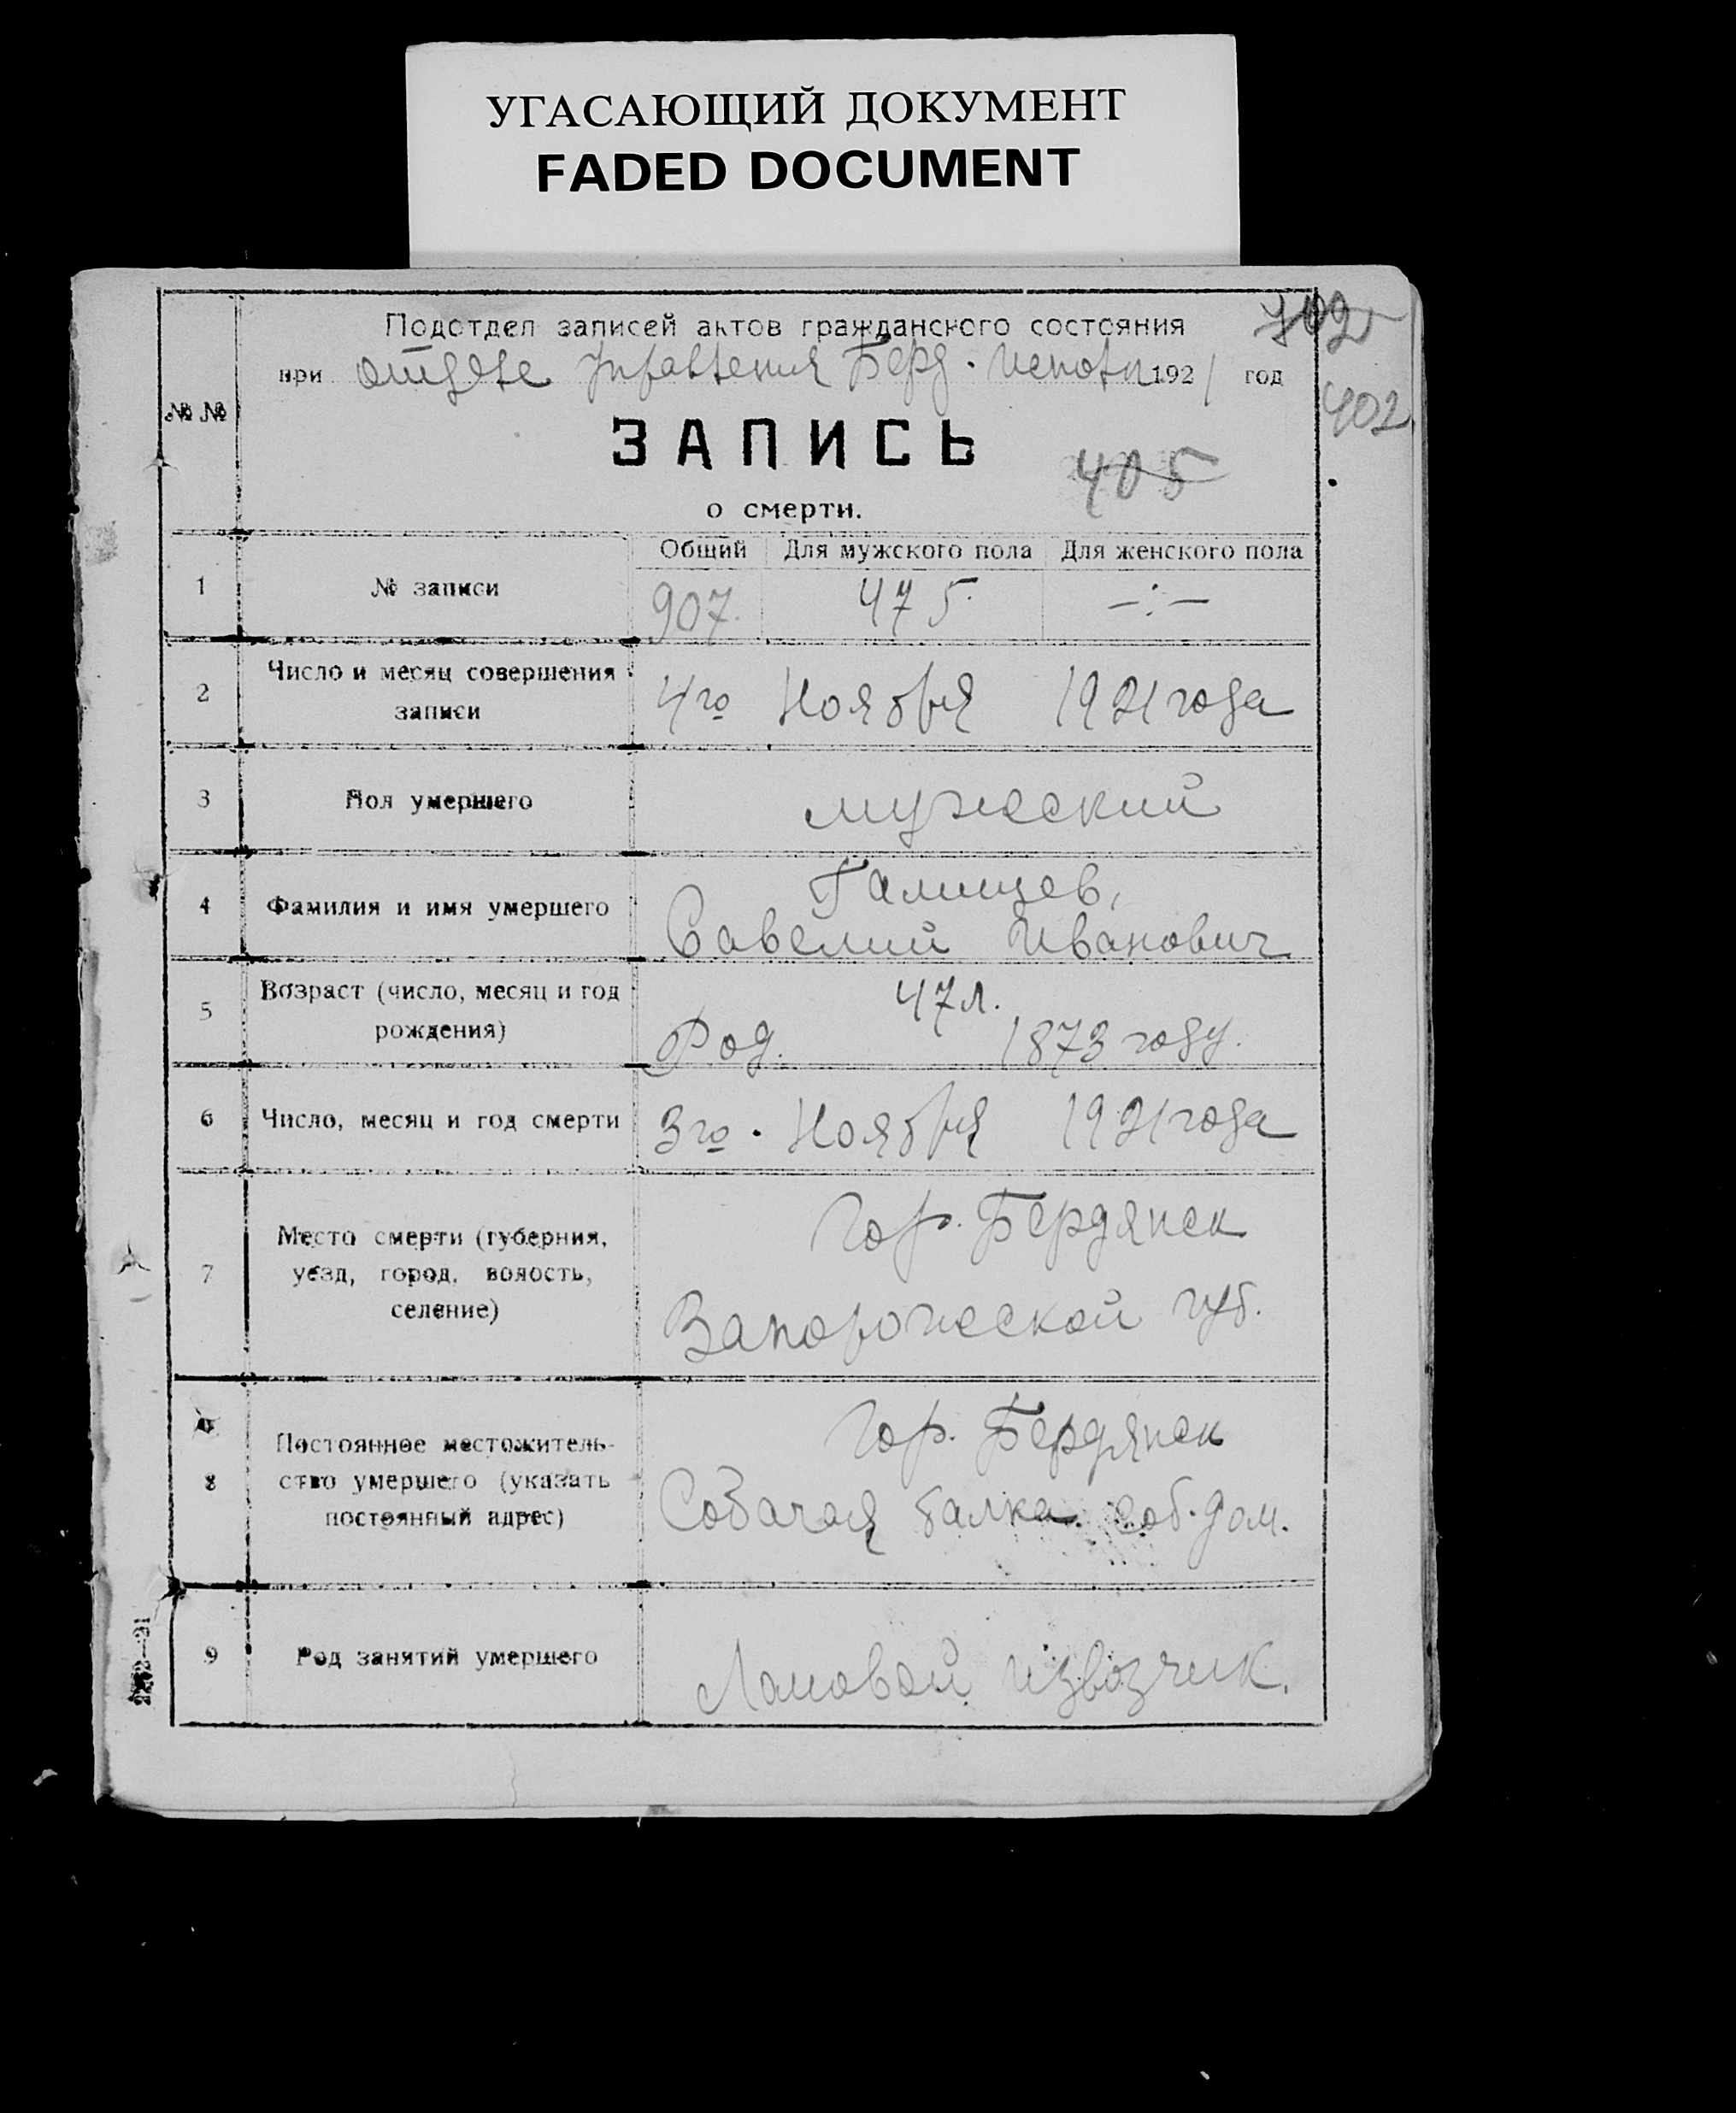 УГАСАЮЩИЙ ДОКУМЕНТ
FADED DOCUMENT
Подотдел записей актов гражданского состояния
702
при отделе Управления Берд. Исполк 1921 год
402
№ №
ЗАПИСЬ
405
о смерти.
Общий Для мужского пола Для женского пола
1 № записи 907. 475. —:—
2 Число и месяц совершения
записи
4го Ноября 1921 года
3 Пол умершего мужеский
4 Фамилия и имя умершего
Галищев,
Савелий Иванович
5 Возраст (число, месяц и год
рождения)
47 л.
Род. 1873 году.
6 Число, месяц и год смерти 3го. Ноября 1921 года
7 Место смерти (губерния,
уезд, город, волость,
селение)
Гор. Бердянск
Запорожеской губ.
8 Постоянное местожитель-
ство умершего (указать
постоянный адрес)
Гор. Бердянск
Собачая балка. соб. дом.
9 Род занятий умершего Ломовой извозчик.